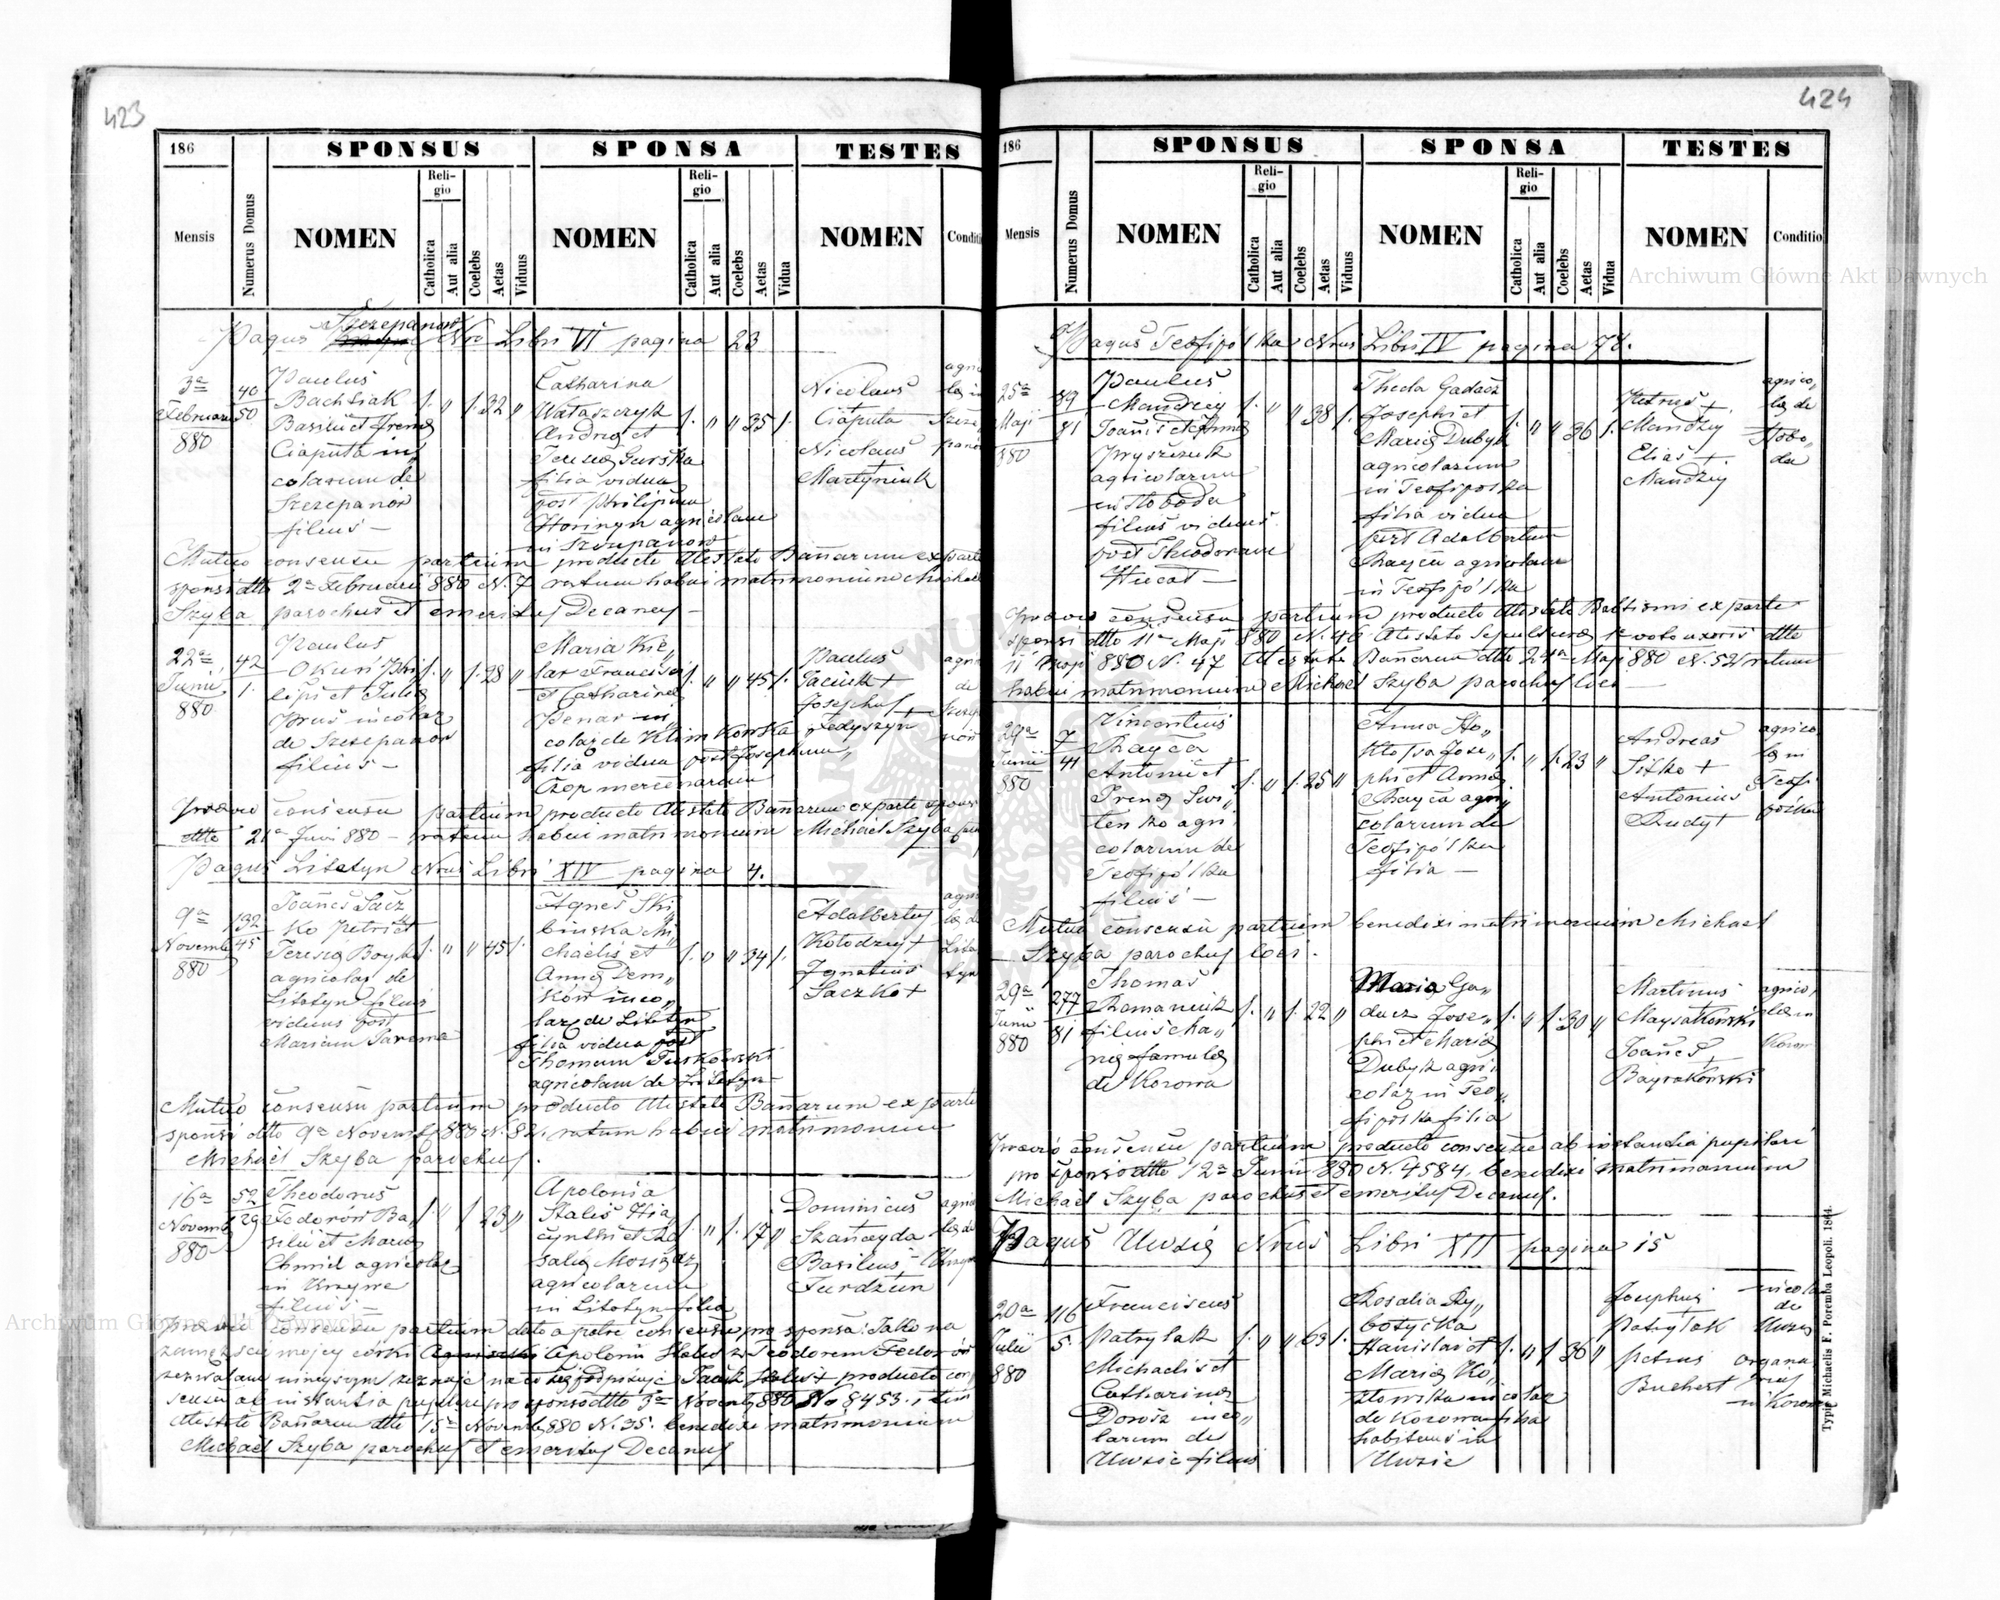 423
186
SPONSUS
SPONSA
TESTES
Mensis
Numerus Domus
NOMEN
Religio
Catholica
Aut alia
Coelebs
Aetas
Viduus
NOMEN
Religio
Catholica
Aut alia
Coelebs
Aetas
Vidua
NOMEN
Conditio
Pagus Szczepanow Nrus Libri VI pagina 23
3a Februarii 880
40 50
Paulus
Bachsiak
Basilii et Irenæ
Ciaputa in„
colarum de
Szczepanow
filius —
32
Catharina
Wataszczyk
Andreæ et
Teresiæ Gurska
filia vidua
post Philipum
Horinyn agricolam
in Szczepanow
35
Nicolaus
Ciaputa
Nicolaus
Martyniuk
Mutuo consensu partium producto Atestato Bañarum ex parte
sponsi dtto 2a Februarii 880 N. 7 ratum habui matrimonium Michael
Szyba parochus et emeritus Decanus —
22a Junii 880
42 1.
Paulus
Okuń Phi„
lipi et Juliæ
Pruś incolar
de Szczepanow
filius —
28
Maria Kie„
lar Francisci
et Catharinæ
Penar in„
colaæ de Klimkowska
filia vidua post Josephum
Czop mercenarium
45
Paulus
Jaciuk +
Josephus
Fedyszyn +
Prævio consensu partium producto Atestato Bañarum ex parte sponsi
dtto 21a Junii 880 — ratum habui matrimonium Michael Szyba
Pagus Litetyn Nrus Libri XIV pagina 4.
9a Novemb 880
132 45
Joañes Sacz„
ko Petri et
Teresiæ Boyko
agricolas de
Litetyn filius
viduus post
Mariam
45
Agnes Ski„
binska Mi„
chaelis et
Annæ Dem„
kow inco„
laræ de Litetyn
filia vidua post
Thomam Turkowski
agricolam de Litetyn
34
Adalbertus
Kołodziy +
Ignatius
Saczko +
Mutuo consensu partium producto Atestato Bañarum ex parte
sponsi dtto 9a Novemb 880 N. 82. ratum habui matrimonium
Michael Szyba parochus.
16a Novemb 880
52 29
Theodorus
Fedorów Ba„
silii et Mariæ
Chmil agricolæ
in
filius —
23
Apolonia
Stalis Hia„
cynthi et Ro„
saliæ
agricolarum
in Litetyn filia
17
Dominicus
Szanayda
Basilius
Turdzun
Prævio consensu partium dato a patre consensu pro sponsa: Jako na
zamęzscie mojey corki Apolonii Stalis z Teodorem Fedorów
zezwalam niniejszym zeznaję na co się podpisuję Jacek Stalis + producto con„
sensu ab instantia pupilari pro sponso dtto 3a Novemb 880 No 8453.
Atestato Bañarum dtto 15a Novemb 880 N. 35. benedixi matrimonium
Michael Szyba parochus et emeritus Decanus
424
186
SPONSUS
SPONSA
TESTES
Mensis
Numerus Domus
NOMEN
Religio
Catholica
Aut alia
Coelebs
Aetas
Viduus
NOMEN
Religio
Catholica
Aut alia
Coelebs
Aetas
Vidua
NOMEN
Conditio
Pagus Teofipolka Nrus Libri IV pagina 78.
25a Maji 880
Paulus
Mandziy
Joañis et Annæ
Pryszczuk
agricolarum
in Słoboda
filius viduus
post Theodoram
Hucał —
38
Thecla Gadacz
Josephi et
Mariæ Dubyk
agricolarum
in Teofipolka
filia vidua
post Adalbertum
Rayca agricolam
in Teofipolka
36
Petrus +
Mandziy
Elias +
Mandziy
agrico„
læ de
Słobo„
da
Prævio consensu partium producto Atestato Baptismi ex parte
sponsi dtto 11a Maji 880 N. 46 Atestato Sepulturæ 1o voto uxoris dtto
11 Maji 880 N. 47 Atestato Bañarum dtto 24a Maji 880 N. 52 ratum
habui matrimonium Michael Szyba parochus loci —
29a Junii 880
7 41
Vincentius
Rayca
Antonii et
Irenæ Swi„
tenko agri„
colarum de
Teofipolka
filius —
25
Anna Sto„
kłosa Jose„
phi et Annæ
Rayca agri„
colarum de
Teofipolka
filia —
23
Andreas
Sitko +
Antonius
Rudy +
agrico„
læ in
Teofi
polka
Mutuo consensu partium benedixi matrimonium Michael
Szyba parochus loci.
29a Junii 880
277 81
Thomas
Romaniuk
filius Cha„
niæ famulæ
de Korowa
22
Maria Ga„
dacz Jose„
phi et Mariæ
Dubyk agri„
colæ in Teo„
fipolka filia
30
Martinus
Maysatkowski
Joañes +
Bayrakowski
agrico„
læ in
Prævio consensu partium producto consensu ab instantia pupilari
pro sponso dtto 12a Junii 880 N. 4584, benedixi matrimonium
Michael Szyba parochus et emeritus Decanus.
Pagus Uwsie Nrus Libri XII pagina 15
20a Julii 880
116 5.
Franciscus
Patrylak
Michaelis et
Catharinæ
Dorosz inco„
larum de
Uwsie filius
63
Rosalia Ry„
botycka
Stanislai et
Mariæ Ko„
złowska incolar
de Korowa filia
habitans in
Uwsie
36
Josephus
Patrylak
Petrus
Buchert
incola
de
Uwsie
organa„
in Korowa
Typis Michaelis F. Poremba Leopoli. 1864.
Archiwum Główne Akt Dawnych
Archiwum Główne Akt Dawnych